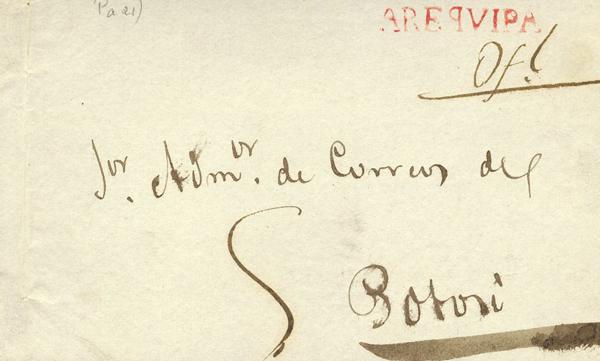 Pa 21)
AREQVIPA
Of.l
Sor. Admor. de Correos del
Potosi